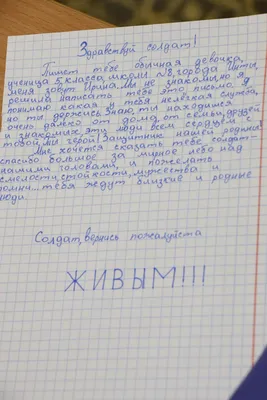 Здравствуй солдат!
Пишет тебе обычная девочка,
ученица 5 класса, школы №8, города Читы,
меня зовут Ирина. Мы не знакомы, но я
решила написать тебе это письмо. Я
понимаю какая у тебя нелёгкая служба,
но ты держись. Знаю, ты находишся
очень далеко от дома, от семьи, друзей
и знакомых, эти люди всем сердцем с
тобой, ты герой! Защитник нашей родины!
Мне хочется сказать тебе солдат-
спасибо большое за мирное небо над
нашими головами, и пожелать
смелости, стойкости, мужества и
помни... тебя ждут близкие и родные
люди.
Солдат, вернись пожалуйста
ЖИВЫМ!!!